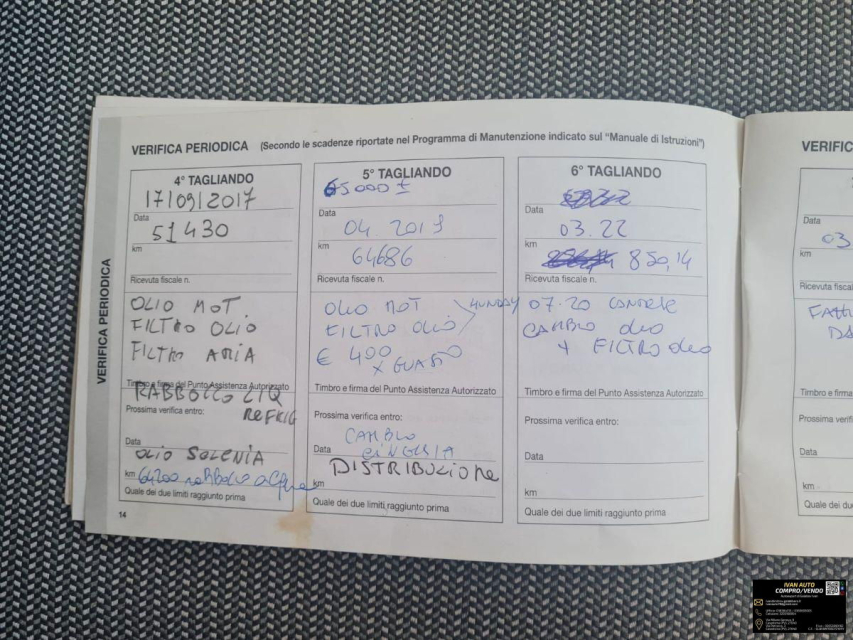 VERIFICA PERIODICA (Secondo le scadenze riportate nel Programma di Manutenzione indicato sul "Manuale di Istruzioni")
VERIFICA PERIODICA
4° TAGLIANDO
17/09/2017
Data
51430
km
Ricevuta fiscale n.
OLIO MOT.
FILTRO OLIO
FILTRO ARIA
Timbro e firma del Punto Assistenza Autorizzato
RABBOCCO LIQ
REFRIG
Prossima verifica entro:
Data
OLIO SELENIA
km 64200
Quale dei due limiti raggiunto prima
14
5° TAGLIANDO
65000
Data
04 2019
km
64686
Ricevuta fiscale n.
OLIO MOT
FILTRO OLIO
€ 400
x GUASTO
Timbro e firma del Punto Assistenza Autorizzato
Prossima verifica entro:
CAMBIO
Data CINGHIA
DISTRIBUZIONE
km
Quale dei due limiti raggiunto prima
6° TAGLIANDO
Data
03.22
km
850,14
Ricevuta fiscale n.
07.20
CAMBIO OLIO
+ FILTRO OLIO
Timbro e firma del Punto Assistenza Autorizzato
Prossima verifica entro:
Data
km
Quale dei due limiti raggiunto prima
VERIFIC
Data
03
km
Ricevuta fisca
Timbro e firm
Prossima verif
Data
km
Quale dei du
IVAN AUTO
COMPRO/VENDO